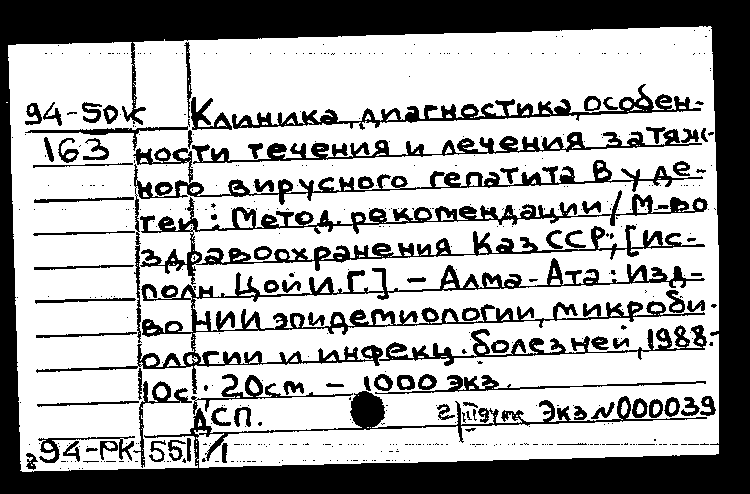 94-5DK Клиника, диагностика, особен-
163 ности течения и лечения затяж-
ного вирусного гепатита В у де-
тей : Метод. рекомендации / М-во
здравоохранения КазССР; [Ис-
полн. Цой И.Г.]. - Алма-Ата : Изд-
во НИИ эпидемиологии, микроби-
ологии и инфекц. болезней, 1988.-
10с. ; 20см. - 1000 экз.
ДСП. Экз N000039
94-РК-551/1